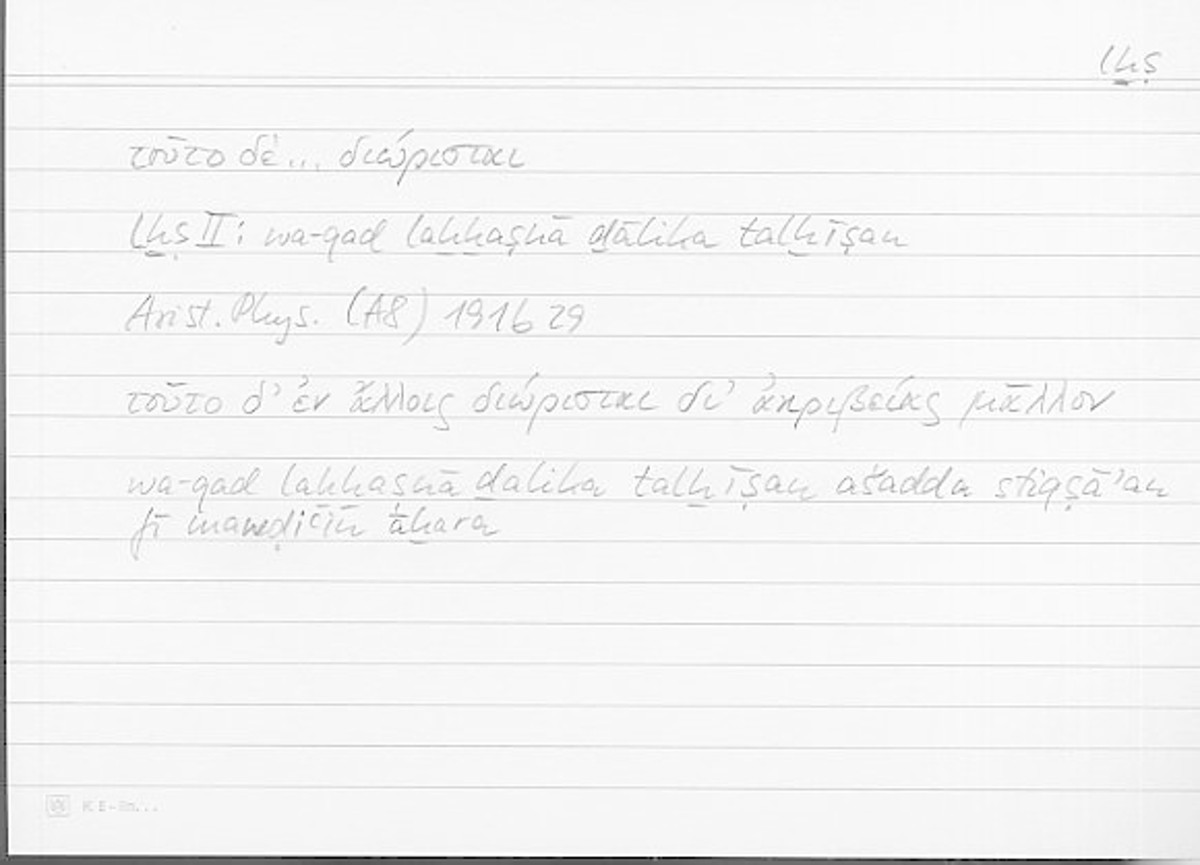 lḫṣ
τοῦτο δέ... διώρισται
Lḫṣ II: wa-qad laḫḫaṣnā ḏālika talḫīṣan
Arist. Phys. (A8) 191b 29
τοῦτο δ' ἐν ἄλλοις διώρισται δι' ἀκριβείας μᾶλλον
wa-qad laḫḫaṣnā ḏalika talḫīṣan ašadda stiqṣā'an
fī mawāḍiʿin āḫara